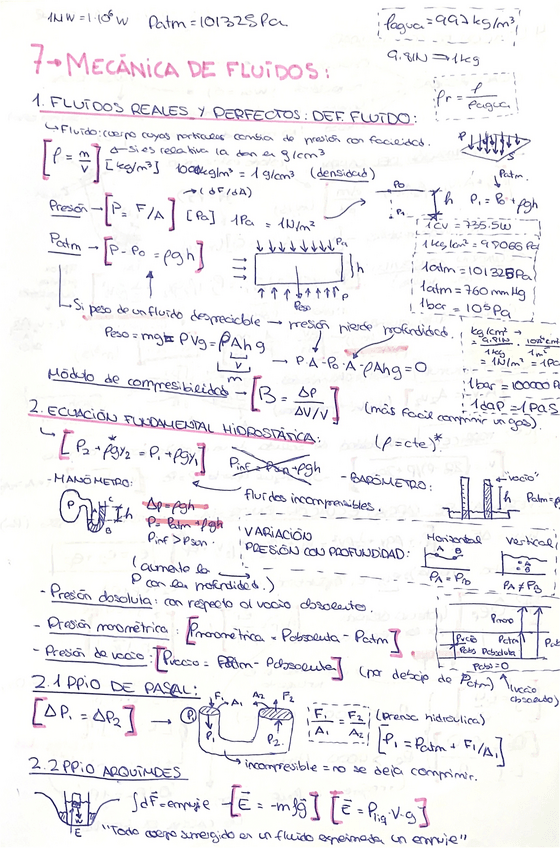 1MW = 1·10⁶ W Patm = 101325 Pa
ρagua = 997 kg/m³
9.81N ⇒ 1kg
7→ MECÁNICA DE FLUÍDOS:
ρr = ρ/ρagua
1. FLUÍDOS REALES Y PERFECTOS: DEF. FLUÍDO:
↳ Fluido: cuerpo cuyas partículas cambia de presión con facilidad.
[ρ = m/V] ← Si es relativa la dan en g/cm³
[kg/m³] = 1g/cm³ (densidad)
→ (dF/dA)
Presión → [P = F/A] [Pa] 1Pa = 1N/m²
Po h P1 = Po + ρgh
Patm.
P S
1CV = 735.5W
1kg/cm² = 98066 Pa
1atm = 101325Pa
1atm = 760 mmHg
1bar = 10⁵Pa
Patm → [P - Po = ρgh]
Po h P
Peso
↳ Si peso de un fluido despreciable → presión pierde profundidad.
Peso = mg = ρVg = ρAhg
V
m
→ P·A - Po·A - ρAhg = 0
kg/cm² →
1kg
= 1N/m² = 1Pa
1bar = 100000 Pa
Módulo de compresibilidad → [B = ΔP / ΔV/V] (más fácil comprimir un gas).
2. ECUACIÓN FUNDAMENTAL HIDROSTÁTICA: (ρ = cte)*
↳ [P2 + ρgy2 = P1 + ρgy1]*
fluidos incompresibles.
- MANÓMETRO:
P h B
Δp = ρgh
P = Patm + ρgh
Pinf > Psup.
(aumenta la
P con la profundidad.)
- BARÓMETRO:
"vacío"
h
VARIACIÓN
PRESIÓN CON PROFUNDIDAD:
Horizontal
A B
PA = PB
Vertical
A
B
PA ≠ PB
- Presión absoluta: con respecto al vacío absoluto.
- Presión manométrica: [Pmanométrica = Pabsoluta - Patm]
- Presión de vacío: [Pvacío = Patm - Pabsoluta] (por debajo de Patm)
Pmano
Pvacío Patm
Pabs Pabsoluta
Pabs = 0
(vacío
absoluto)
2.1 PPIO DE PASCAL:
[ΔP1 = ΔP2] → P1 F1 A1 A2 F2 P2
F1/A1 = F2/A2 (prensa hidráulica)
[P1 = Patm + F1/A1]
↳ incompresible = no se deja comprimir.
2.2 PPIO ARQUÍMDES
∫dF = empuje → [E = -mfg] [E = Pliq·V·g]
E
"Todo cuerpo sumergido en un fluido experimenta un empuje"